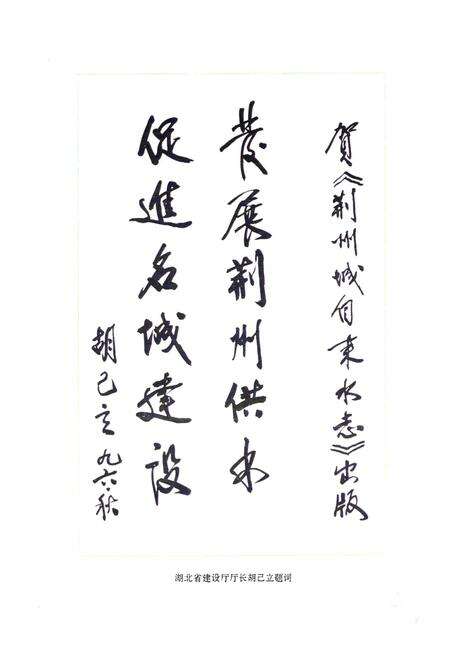 賀《荆州城自来水志》出版
發展荆州供水
促進名城建設
胡己立 九六.秋
湖北省建设厅厅长胡己立题词